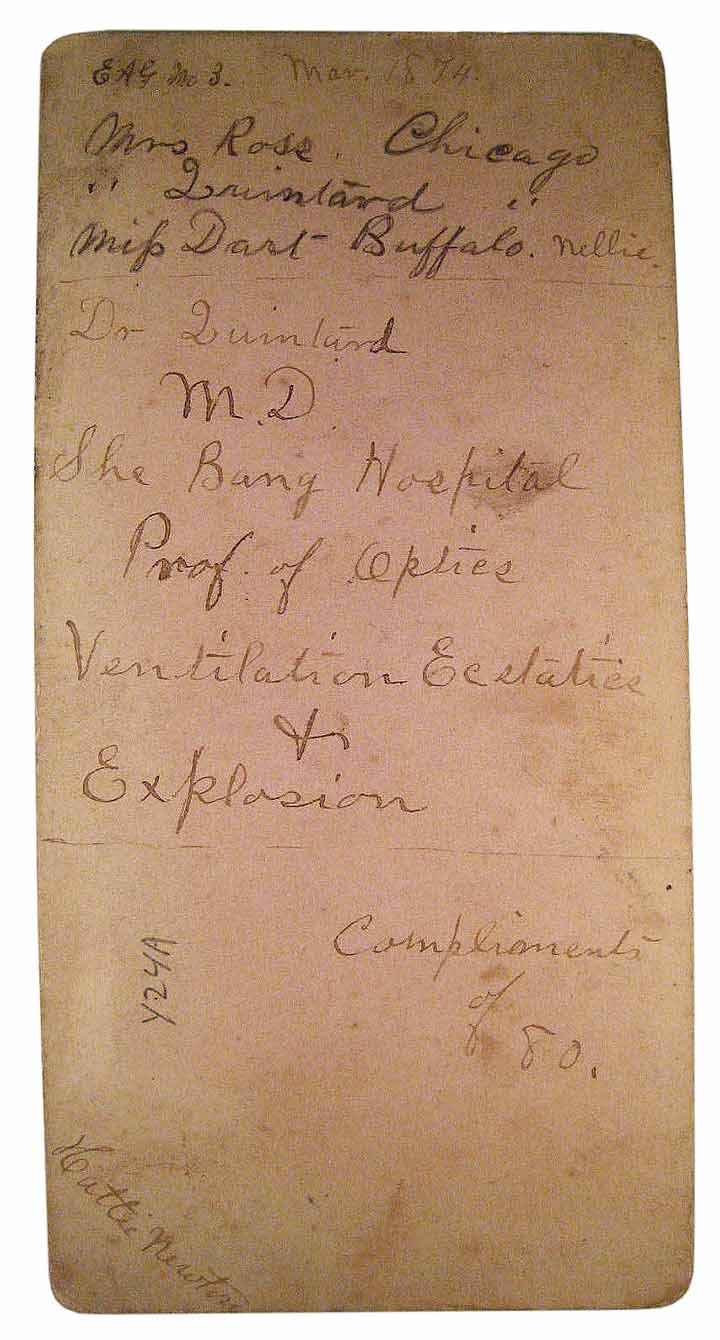 EAG No 3. Mar. 1874.
Mrs Rose. Chicago
" Quintard "
Miss Dart - Buffalo. Nellie.
Dr Quintard
M.D.
She Bang Hospital
Prof. of Optics
Ventilation Ecstatics
&
Explosion
Compliments
of 80.
Hattie Newton